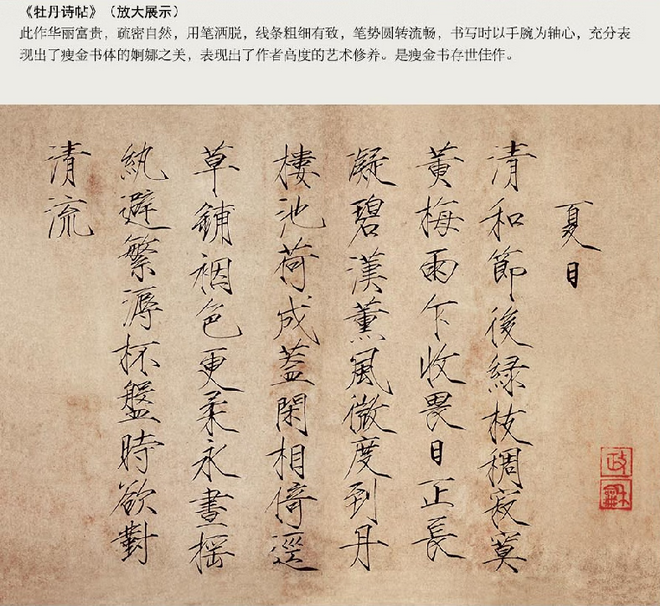 《牡丹诗帖》（放大展示）
此作华丽富贵，疏密自然，用笔洒脱，线条粗细有致，笔势圆转流畅，书写时以手腕为轴心，充分表
现出了瘦金书体的婀娜之美，表现出了作者高度的艺术修养。是瘦金书存世佳作。
夏日
清和節後綠枝稠寂寞
黃梅雨乍收畏日正長
凝碧漢薰風微度到丹
樓池荷成蓋閑相倚逕
草鋪裀色更柔永晝搖
紈避繁溽杯盤時欲對
清流
政